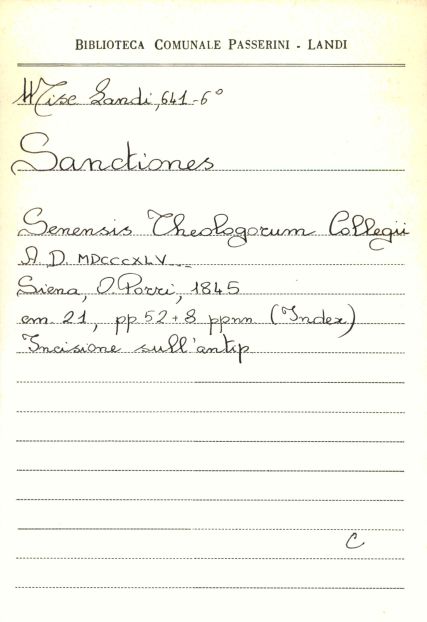 BIBLIOTECA COMUNALE PASSERINI - LANDI
Misc Landi, 641-6°
Sanctiones
Senensis Theologorum Collegii
A. D. MDCCCXLV...
Siena, O. Porri, 1845
cm. 21, pp 52+8 ppnn (Index)
Incisione sull'antip
C